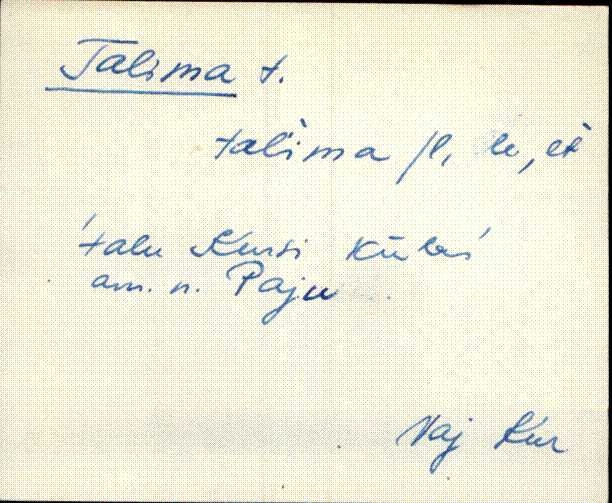 Talima t.
tal̀ima /l, le, et
'talu Kursi külas'
am. n. Paju
Vaj Kur